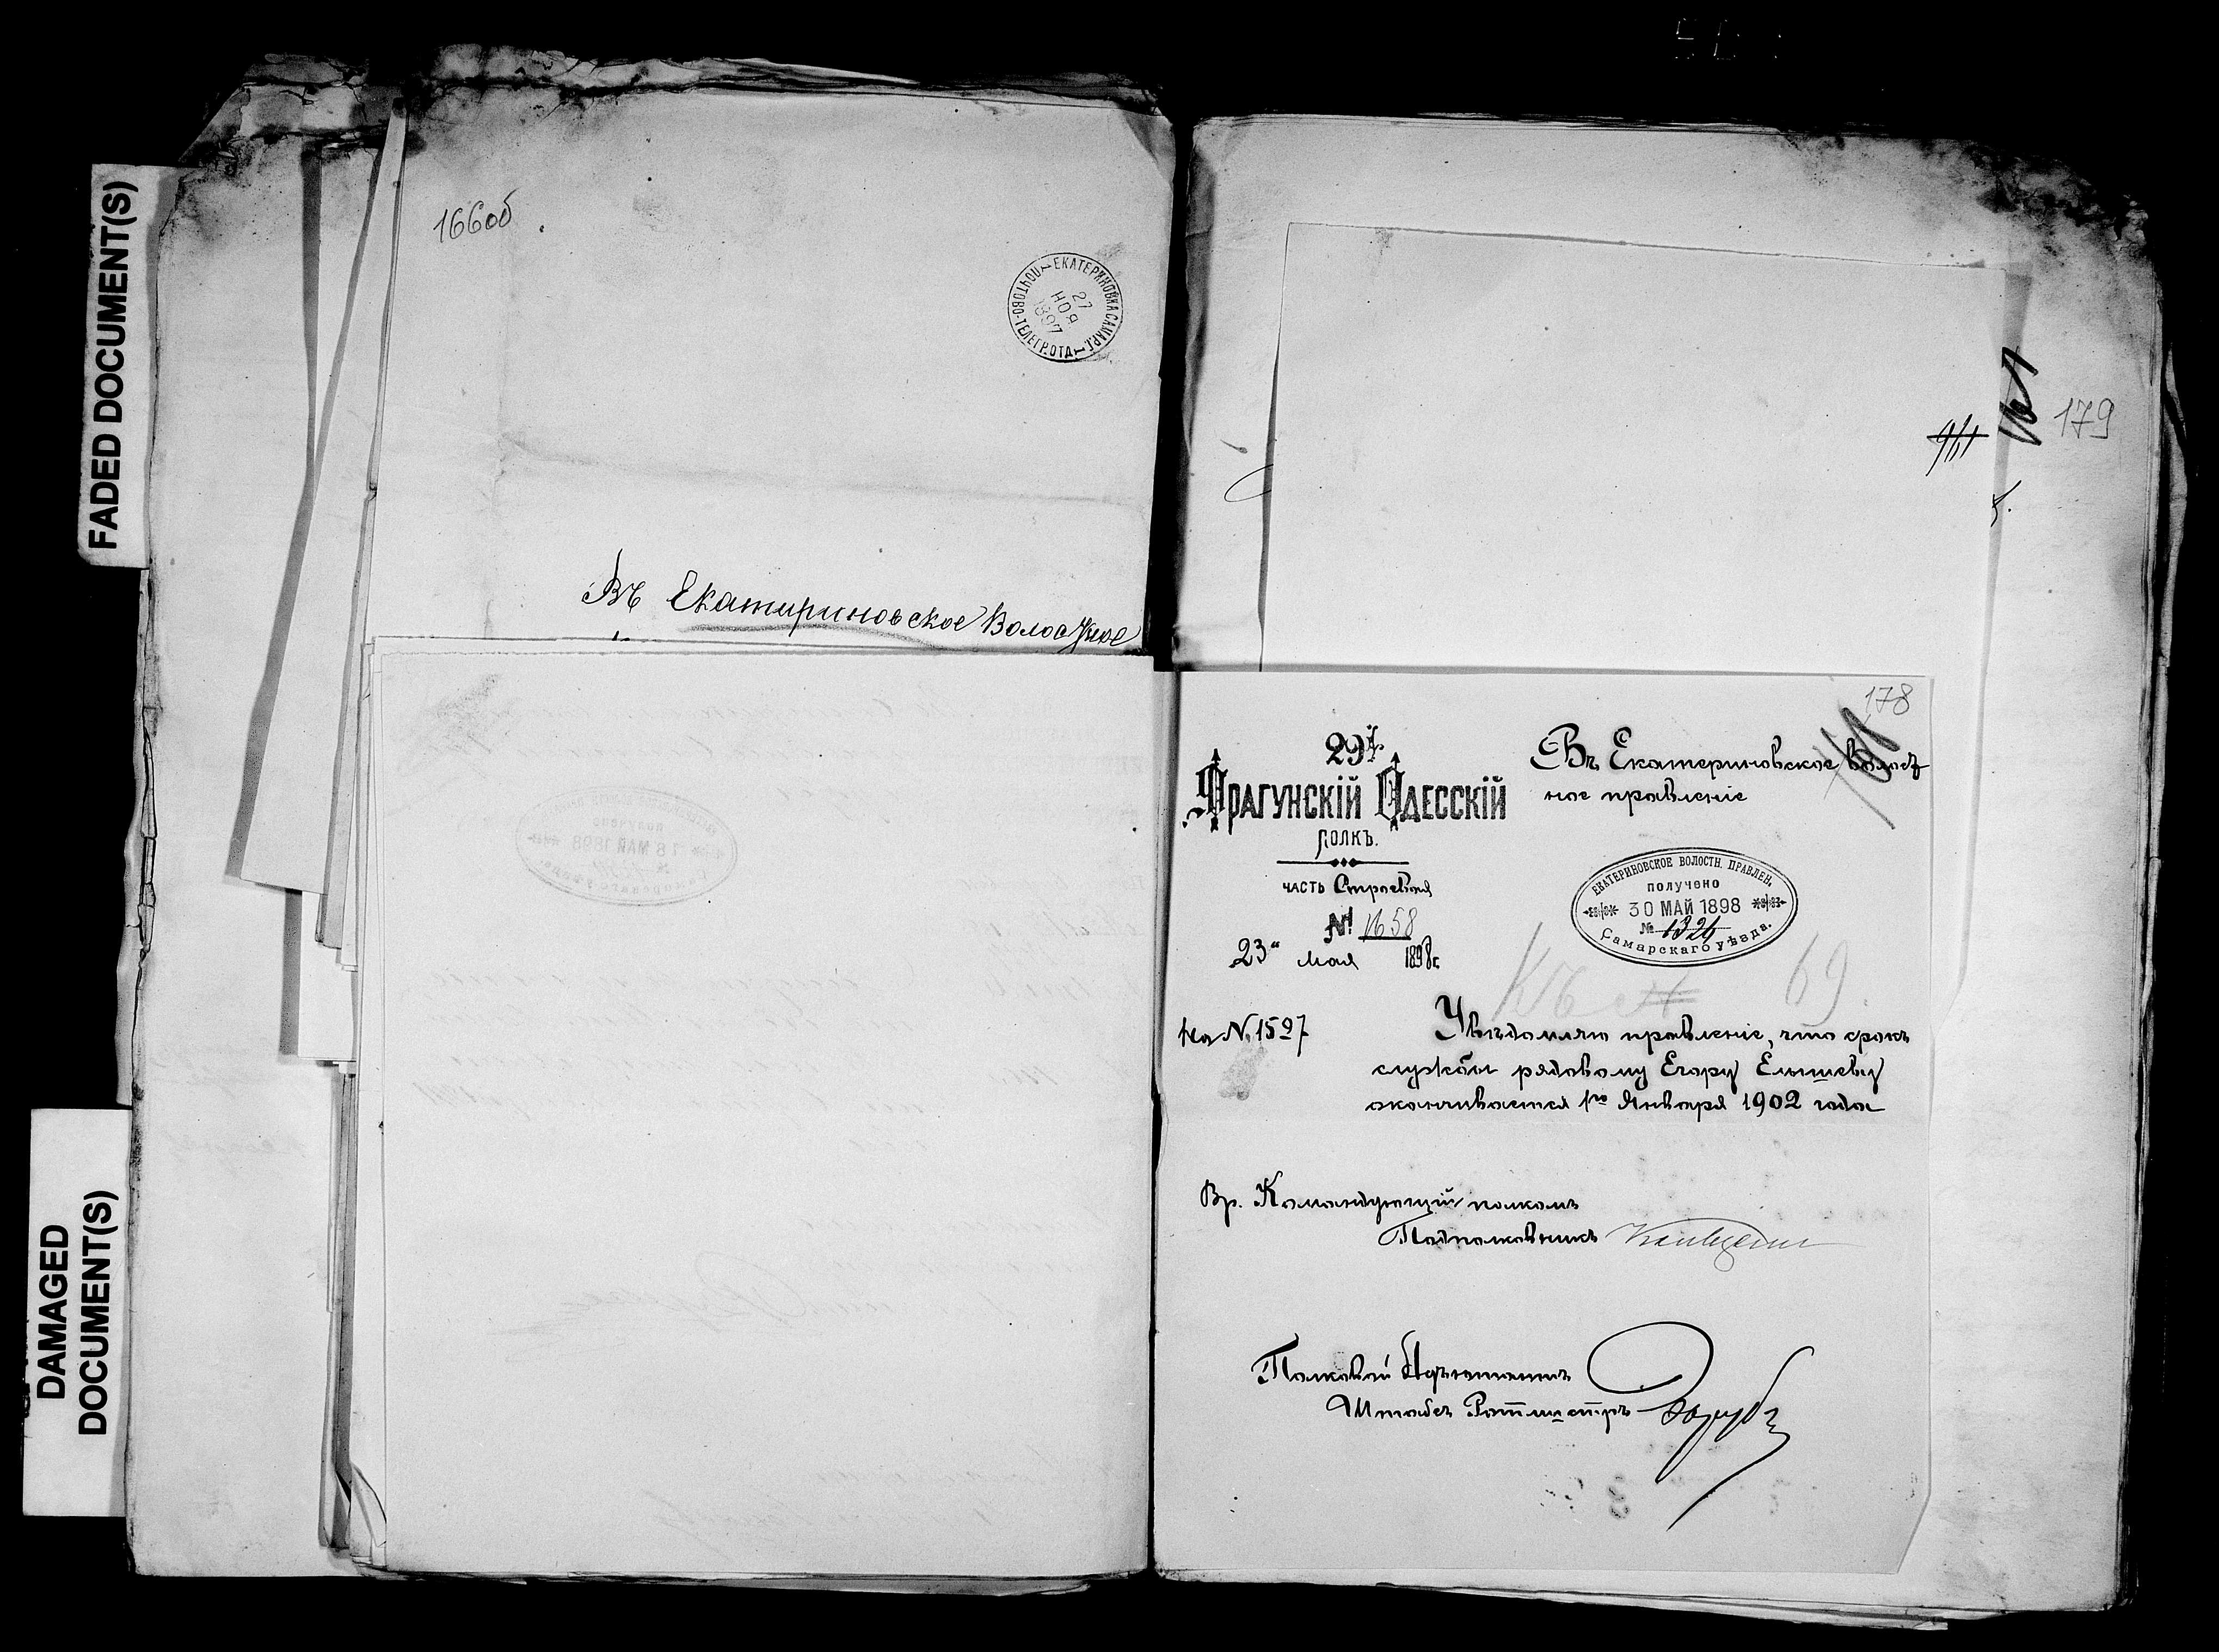 FADED DOCUMENT(S)
DAMAGED
DOCUMENT(S)
166об
ЕКАТЕРИНОВКА САМАР. Г.
ПОЧТОВО-ТЕЛЕГР. ОТД.
27
НОЯ
1897
Въ Екатириновское Волостное
179
178
29й
Драгунскій Одесскій
полкъ.
часть Строевая
№ 1658
23" мая 1898 г.
На № 1597
Въ Екатериновское волост
ное правленіе
ЕКАТЕРИНОВСКОЕ ВОЛОСТН. ПРАВЛЕН.
получено
30 МАЙ 1898
№ 1324
Самарскаго уѣзда.
Къ № 69.
Увѣдомляю правленіе, что срокъ
службы рядовому Егору Елышеву
оканчивается 1го Января 1902 года
Вр. Командующій полкомъ
Подполковникъ
Полковой Адъютантъ
Штабсъ Ротмистръ
18 МАЙ 1898